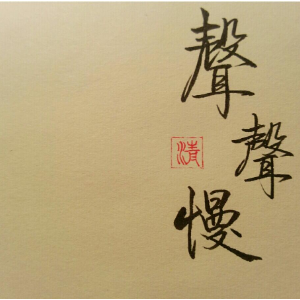 聲
聲
慢
清